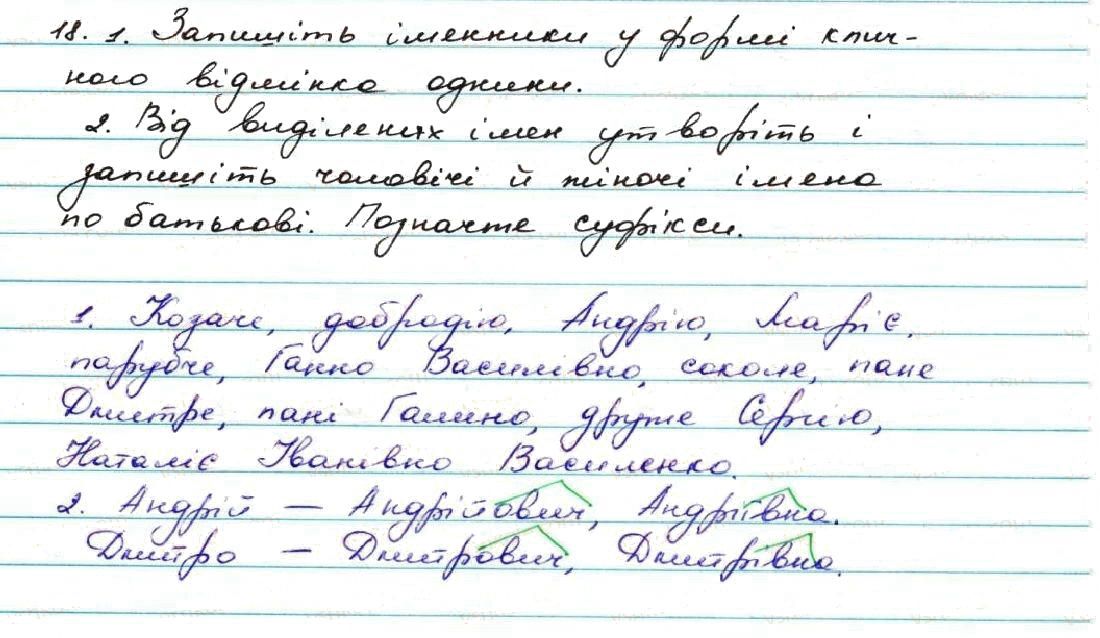 18. 1. Запишіть іменники у формі клич-
ного відмінка однини.
2. Від виділених імен утворіть і
запишіть чоловічі й жіночі імена
по батькові. Позначте суфікси.
1. Козаче, добродію, Андрію, Маріє,
парубче, Ганно Василівно, соколе, пане
Дмитре, пані Галино, друже Сергію,
Наталіє Іванівно Василенко.
2. Андрій — Андрійович, Андріївна.
Дмитро — Дмитрович, Дмитрівна.